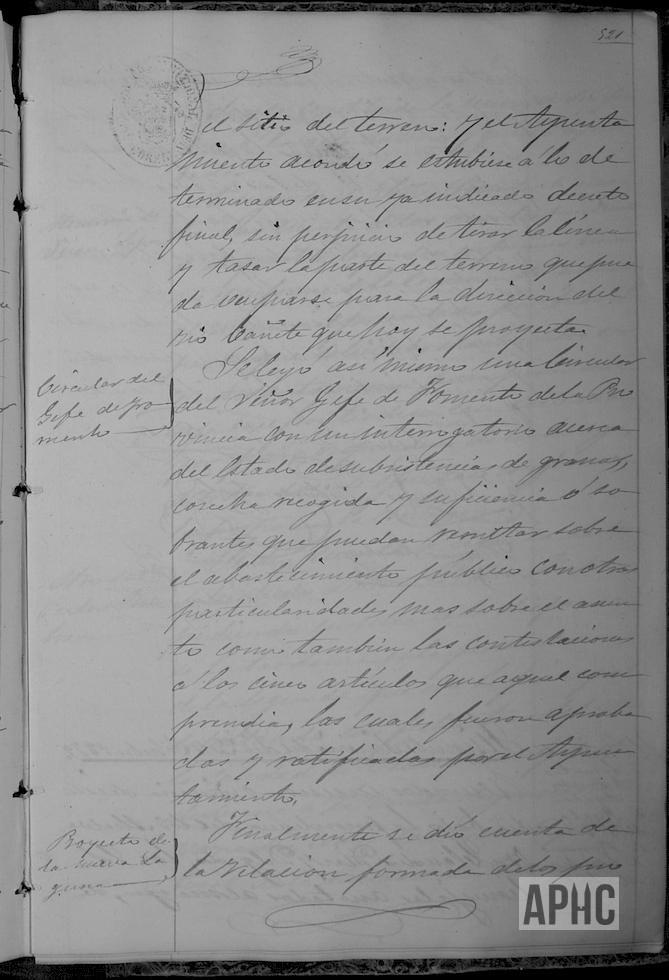 521
el sitio del terreno: y el Ayunta
miento acordó se estubiese a lo de
terminado en su ya indicado decreto
final, sin perjuicio de tirar la línea
y tasar la parte del terreno que pue
da ocuparse para la dirección del
rio Cañete que hoy se proyecta.
Circular del
Gefe de Fo
mento
Se leyó asi mismo una Circular
del Señor Gefe de Fomento de la Pro
vincia con un interrogatorio acerca
del Estado de subsistencias de granos,
cosecha recogida y suficiencia ó so
brantes que puedan resultar sobre
el abastecimiento público con otras
particularidades mas sobre el asun
to como tambien las contestaciones
á los cinco artículos que aquel com
prendia, las cuales fueron aproba
das y ratificadas por el Ayun
tamiento.
Proyecto de
la nueva La
guna
Finalmente se dió cuenta de
la relacion formada de los pue
APHC